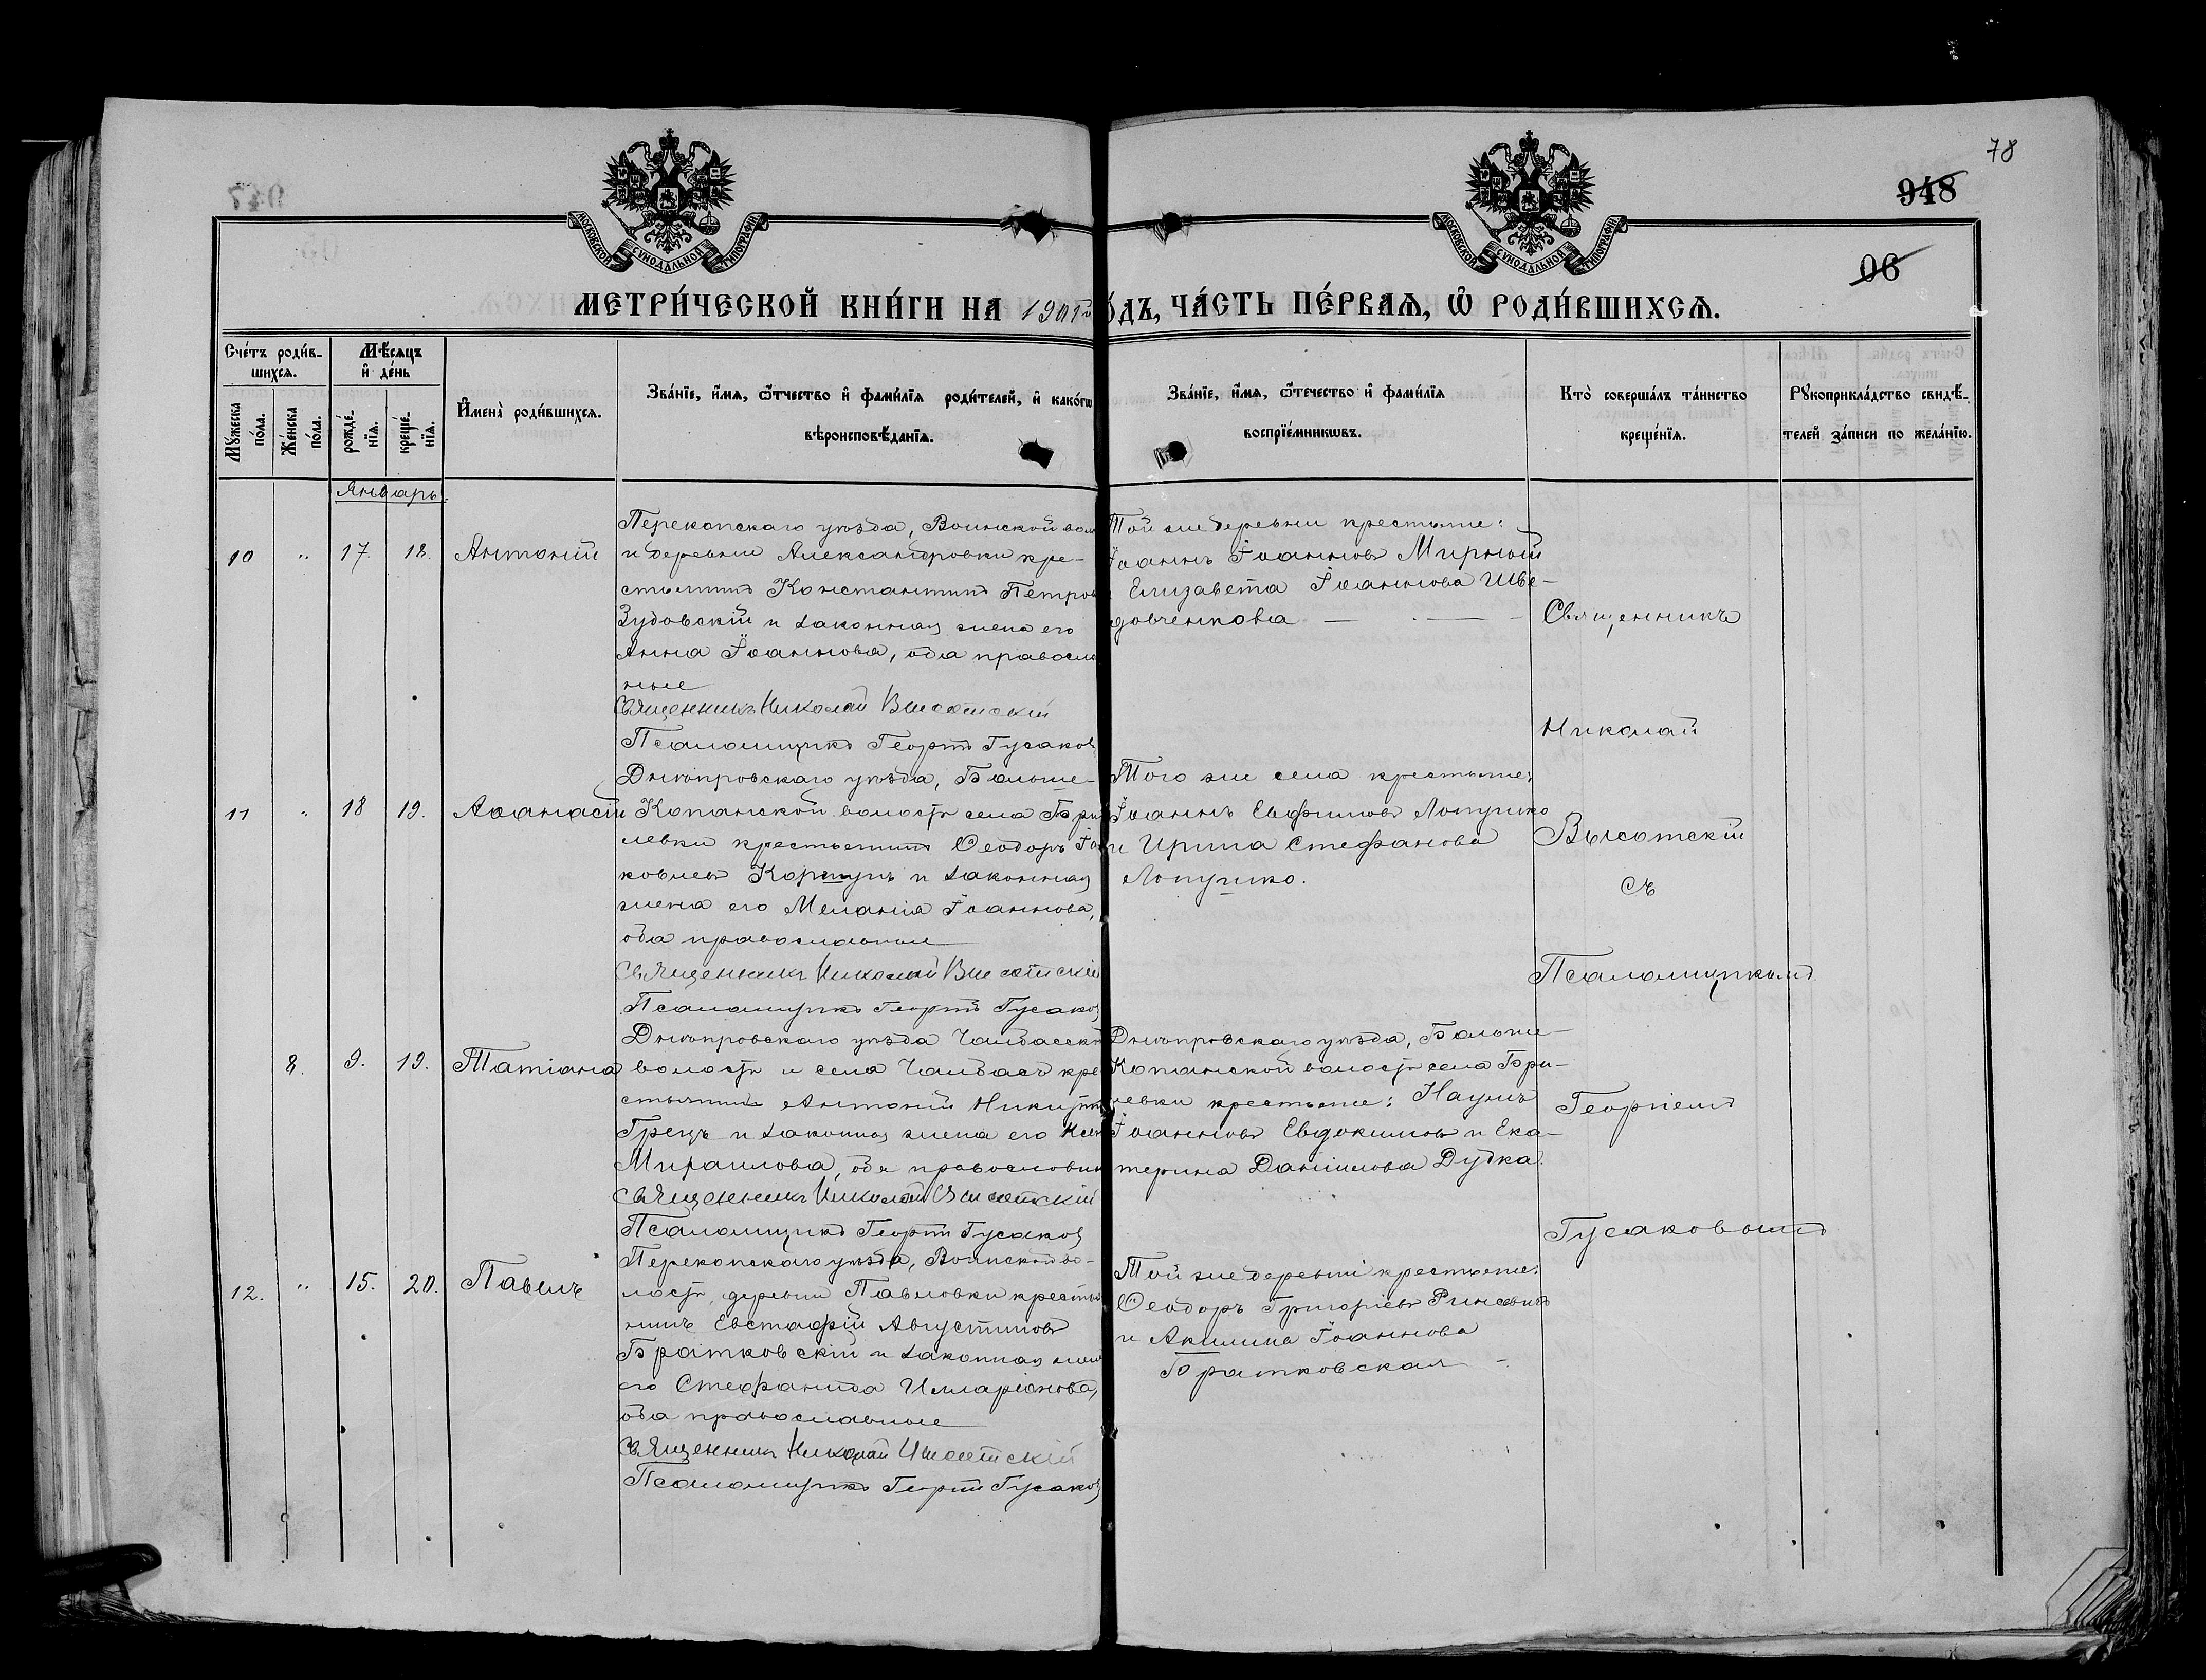 78
948
06
МОСКОВСКОЙ СУНОДАЛЬНОЙ ТИПОГРАФІИ
МОСКОВСКОЙ СУНОДАЛЬНОЙ ТИПОГРАФІИ
МЕТРИ́ЧЕСКОЙ КНИ́ГИ НА 1901й
О́ДЪ, ЧА́СТЬ ПЕ́РВАѦ, Ѿ РОДИ́ВШИХСѦ.
Сче́тъ роди́в-
шихсѧ.
Мꙋжеска
по́ла.
Же́нска
по́ла.
Мѣ́сѧцъ
и҆ де́нь
рожде́-
нїѧ.
креще́-
нїѧ.
И҆мена̀ роди́вшихсѧ.
Зва́нїе, и҆́мѧ, ѻ҆́тчество и҆ фами́лїѧ роди́телей, и҆ како́гѡ
вѣроисповѣ́данїѧ.
Зва́нїе, и҆́мѧ, ѻ҆те́чество и҆ фами́лїѧ
воспрїе́мникѡвъ.
Кто̀ соверша́лъ та́инство
креще́нїѧ.
Рꙋкоприкла́дство свидѣ́-
телей за́писи по жела́нїю.
Январь.
10 " 17. 18. Антоній
Перекопскаго уѣзда, Воинской вол
и деревни Александровки кре-
стьянинъ Константинъ Петров
Зудовскій и законная жена его
Анна Іоаннова, оба правосла
ные
Священникъ Николай Высотскій
Псаломщикъ Георгій Гусаков
Той же деревни крестьяне:
Іоаннъ Іоанновъ Мирный
Елизавета Іоаннова Шве-
довченкова
11 " 18 19. Аѳанасій
Днѣпровскаго уѣзда, Больше-
Копанской волости села Бри
левки крестьянинъ Ѳеодоръ Іа
ковлевъ Коршунъ и законная
жена его Меланія Іоаннова,
оба православные
Священникъ Николай Высотскій
Псаломщикъ Георгій Гусаков
Того же села крестьяне:
Іоаннъ Евфимовъ Лопушко
и Ирина Стефанова
Лопушко.
8. 9. 19. Татіана
Днѣпровскаго уѣзда Чалбасско
волости и села Чалбасъ кре
стьянинъ Антоній Никит
Грецъ и законная жена его Ксен
Михаилова, оба православны
Священникъ Николай Высотскій
Псаломщикъ Георгій Гусаков
Днѣпровскаго уѣзда, Больше-
Копанской волости села Бри-
левки крестьяне: Наумъ
Іоанновъ Евдокимовъ и Ека-
терина Даніилова Дудка.
12. " 15. 20. Павелъ
Перекопскаго уѣзда, Воинской во-
лости, деревни Павловки крестья
нинъ Евстафій Августиновъ
Братковскій и законная жен
его Стефанида Илларіонова,
оба православные
Священникъ Николай Высотскій
Псаломщикъ Георгій Гусаков
Той же деревни крестьяне:
Ѳеодоръ Григоріевъ
и Акилина Іоаннова
Братковская
Священникъ
Николай
Высотскій
съ
Псаломщикомъ
Георгіемъ
Гусаковымъ